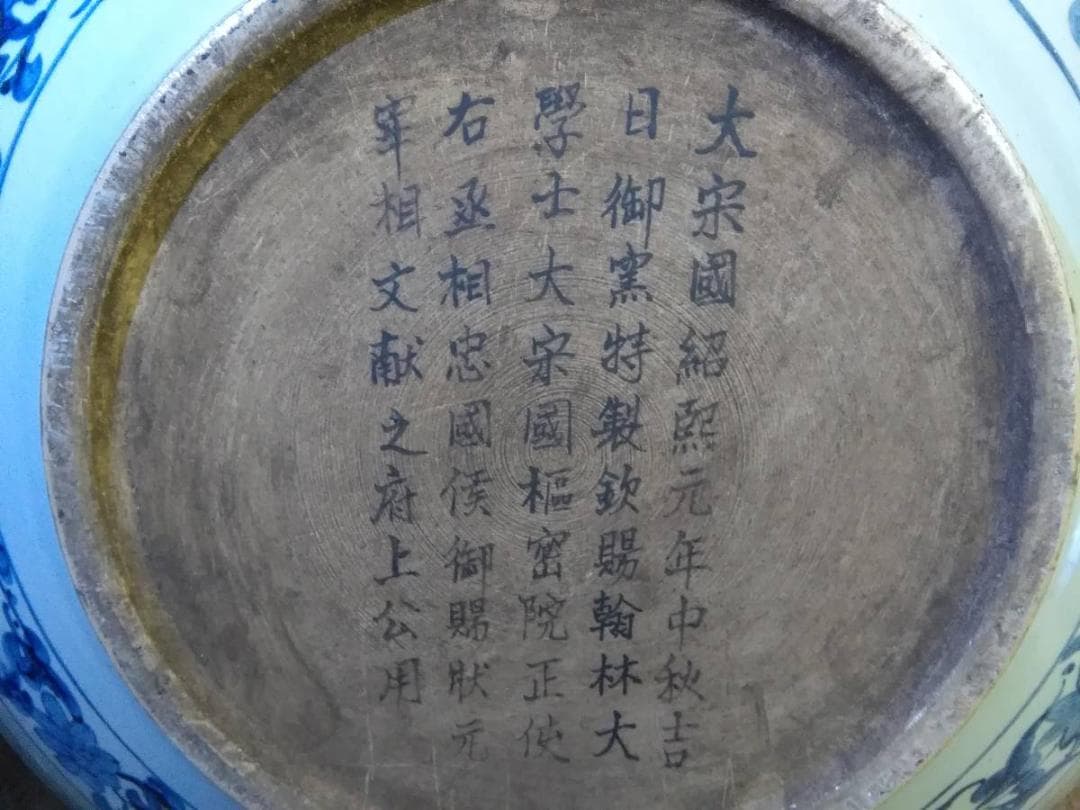 大宋國紹熙元年中秋吉
日御窯特製欽賜翰林大
學士大宋國樞密院正使
右丞相忠國侯御賜狀元
宰相文献之府上公用